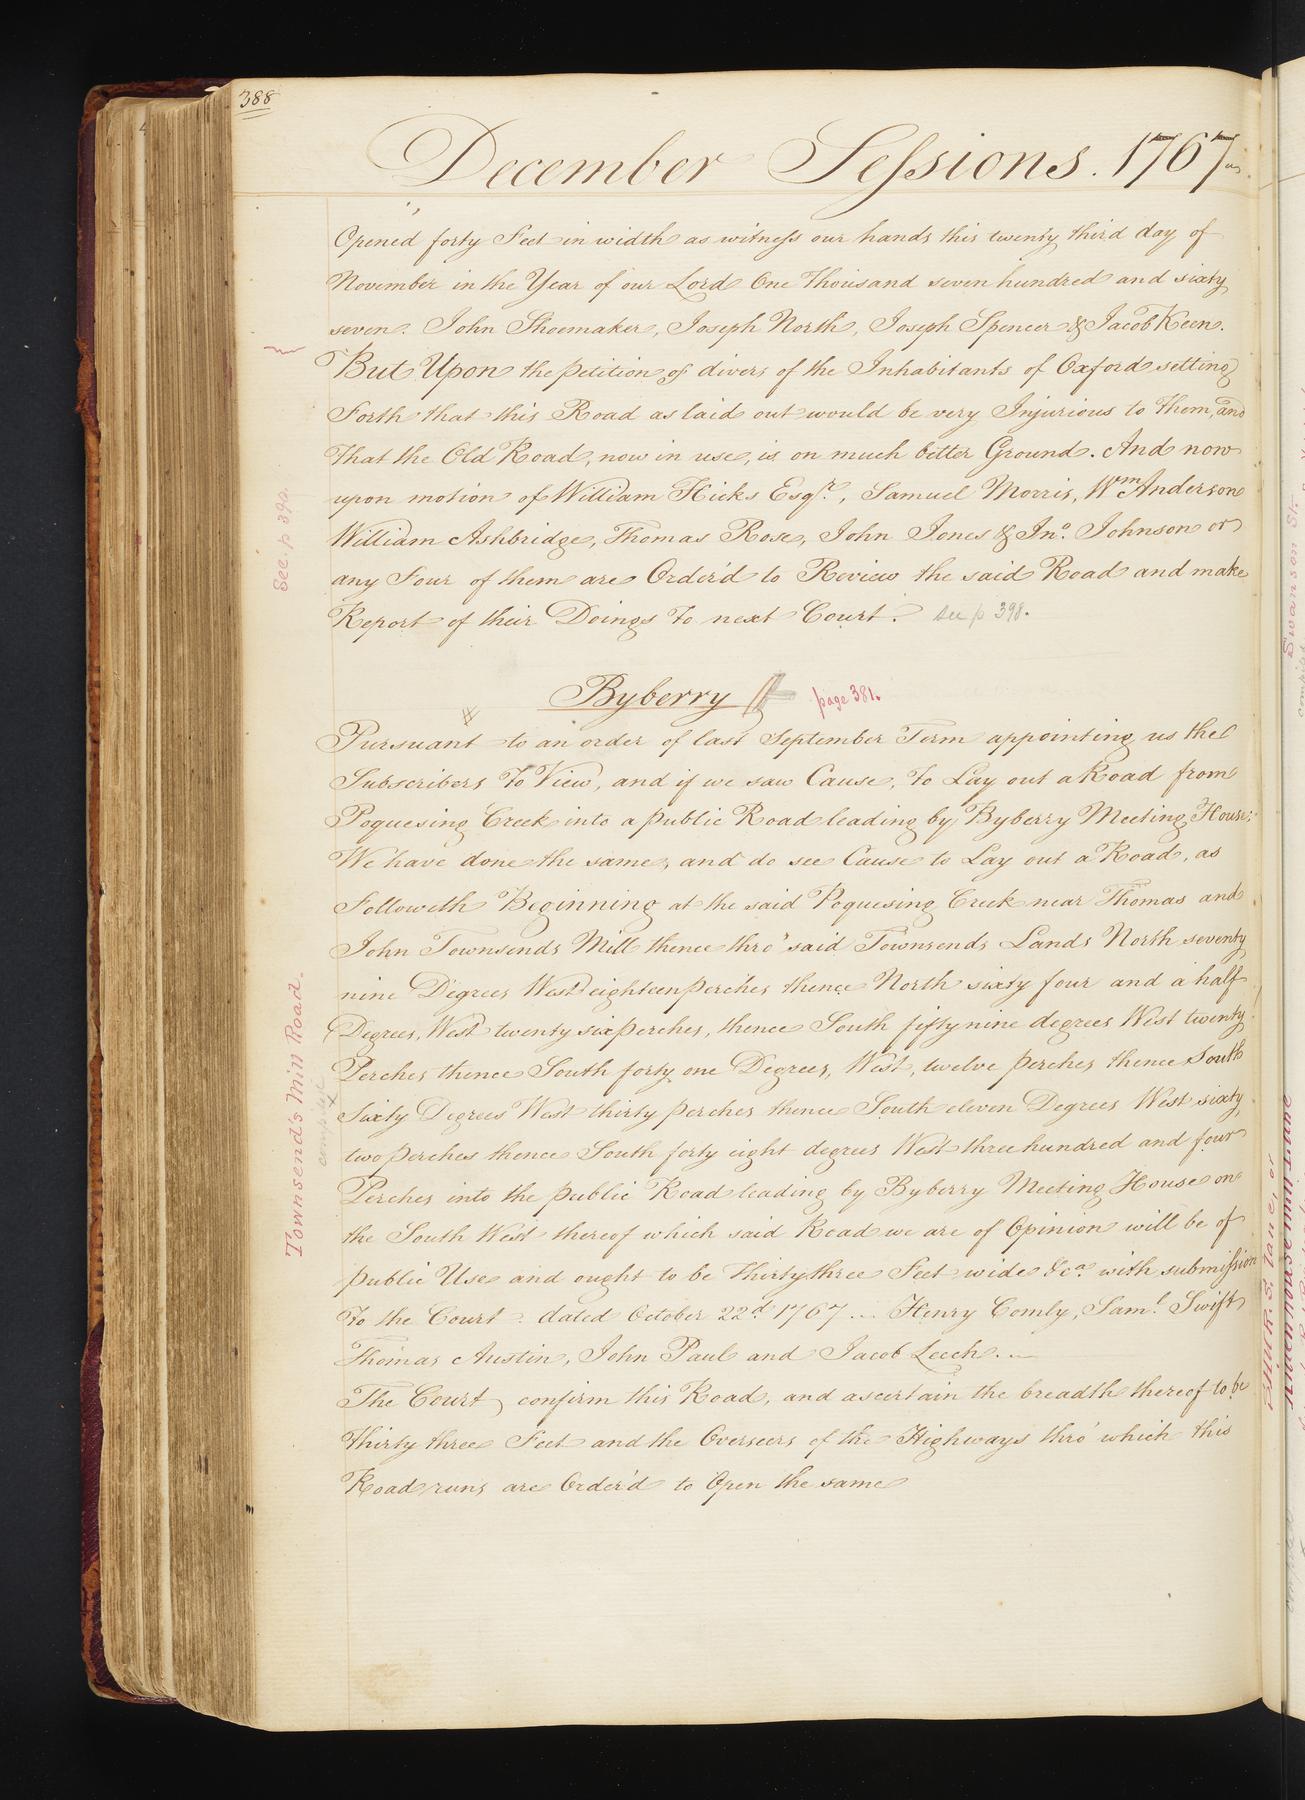 388
December Sessions. 1767
Opened forty Feet in width as witness our hands this twenty third day of
November in the Year of our Lord One Thousand seven hundred and sixty
seven. John Shoemaker, Joseph North, Joseph Spencer & Jacob Keen.
But Upon the petition of divers of the Inhabitants of Oxford setting
Forth that this Road as laid out would be very Injurious to Them, and
That the Old Road, now in use, is on much better Ground. And now
upon motion of William Hicks Esqr., Samuel Morris, Wm Anderson
William Ashbridge, Thomas Rose, John Jones & Jno. Johnson or
any Four of them are Order'd to Review the said Road and make
Report of their Doings To next Court. see p 398.
See. p 390.
Byberry ss page 381.
Pursuant to an order of last September Term appointing us the
Subscribers To View, and if we saw Cause, To Lay out a Road from
Poquesing Creek into a public Road leading by Byberry Meeting House;
We have done the same, and do see Cause to Lay out a Road, as
Followeth Beginning at the said Poquesing Creek near Thomas and
John Townsends Mill thence thro' said Townsends Lands North seventy
nine Degrees West eighteen perches thence North sixty four and a half
Degrees, West twenty six perches, thence South fifty nine degrees West twenty
Perches thence South forty one Degrees, West, twelve perches thence South
Sixty Degrees West thirty perches thence South eleven Degrees West sixty
two perches thence South forty eight degrees West three hundred and four
Perches into the public Road leading by Byberry Meeting House on
the South West thereof which said Road we are of Opinion will be of
public Use and ought to be Thirty three Feet wide &ca. with submission
To the Court. dated October 22d 1767 ... Henry Comly, Saml. Swift
Thomas Austin, John Paul and Jacob Leech.
The Court confirm this Road, and ascertain the breadth thereof to be
Thirty three Feet and the Overseers of the Highways thro' which this
Road runs are Order'd to Open the same
Townsend's Mill Road.
Swanson St.